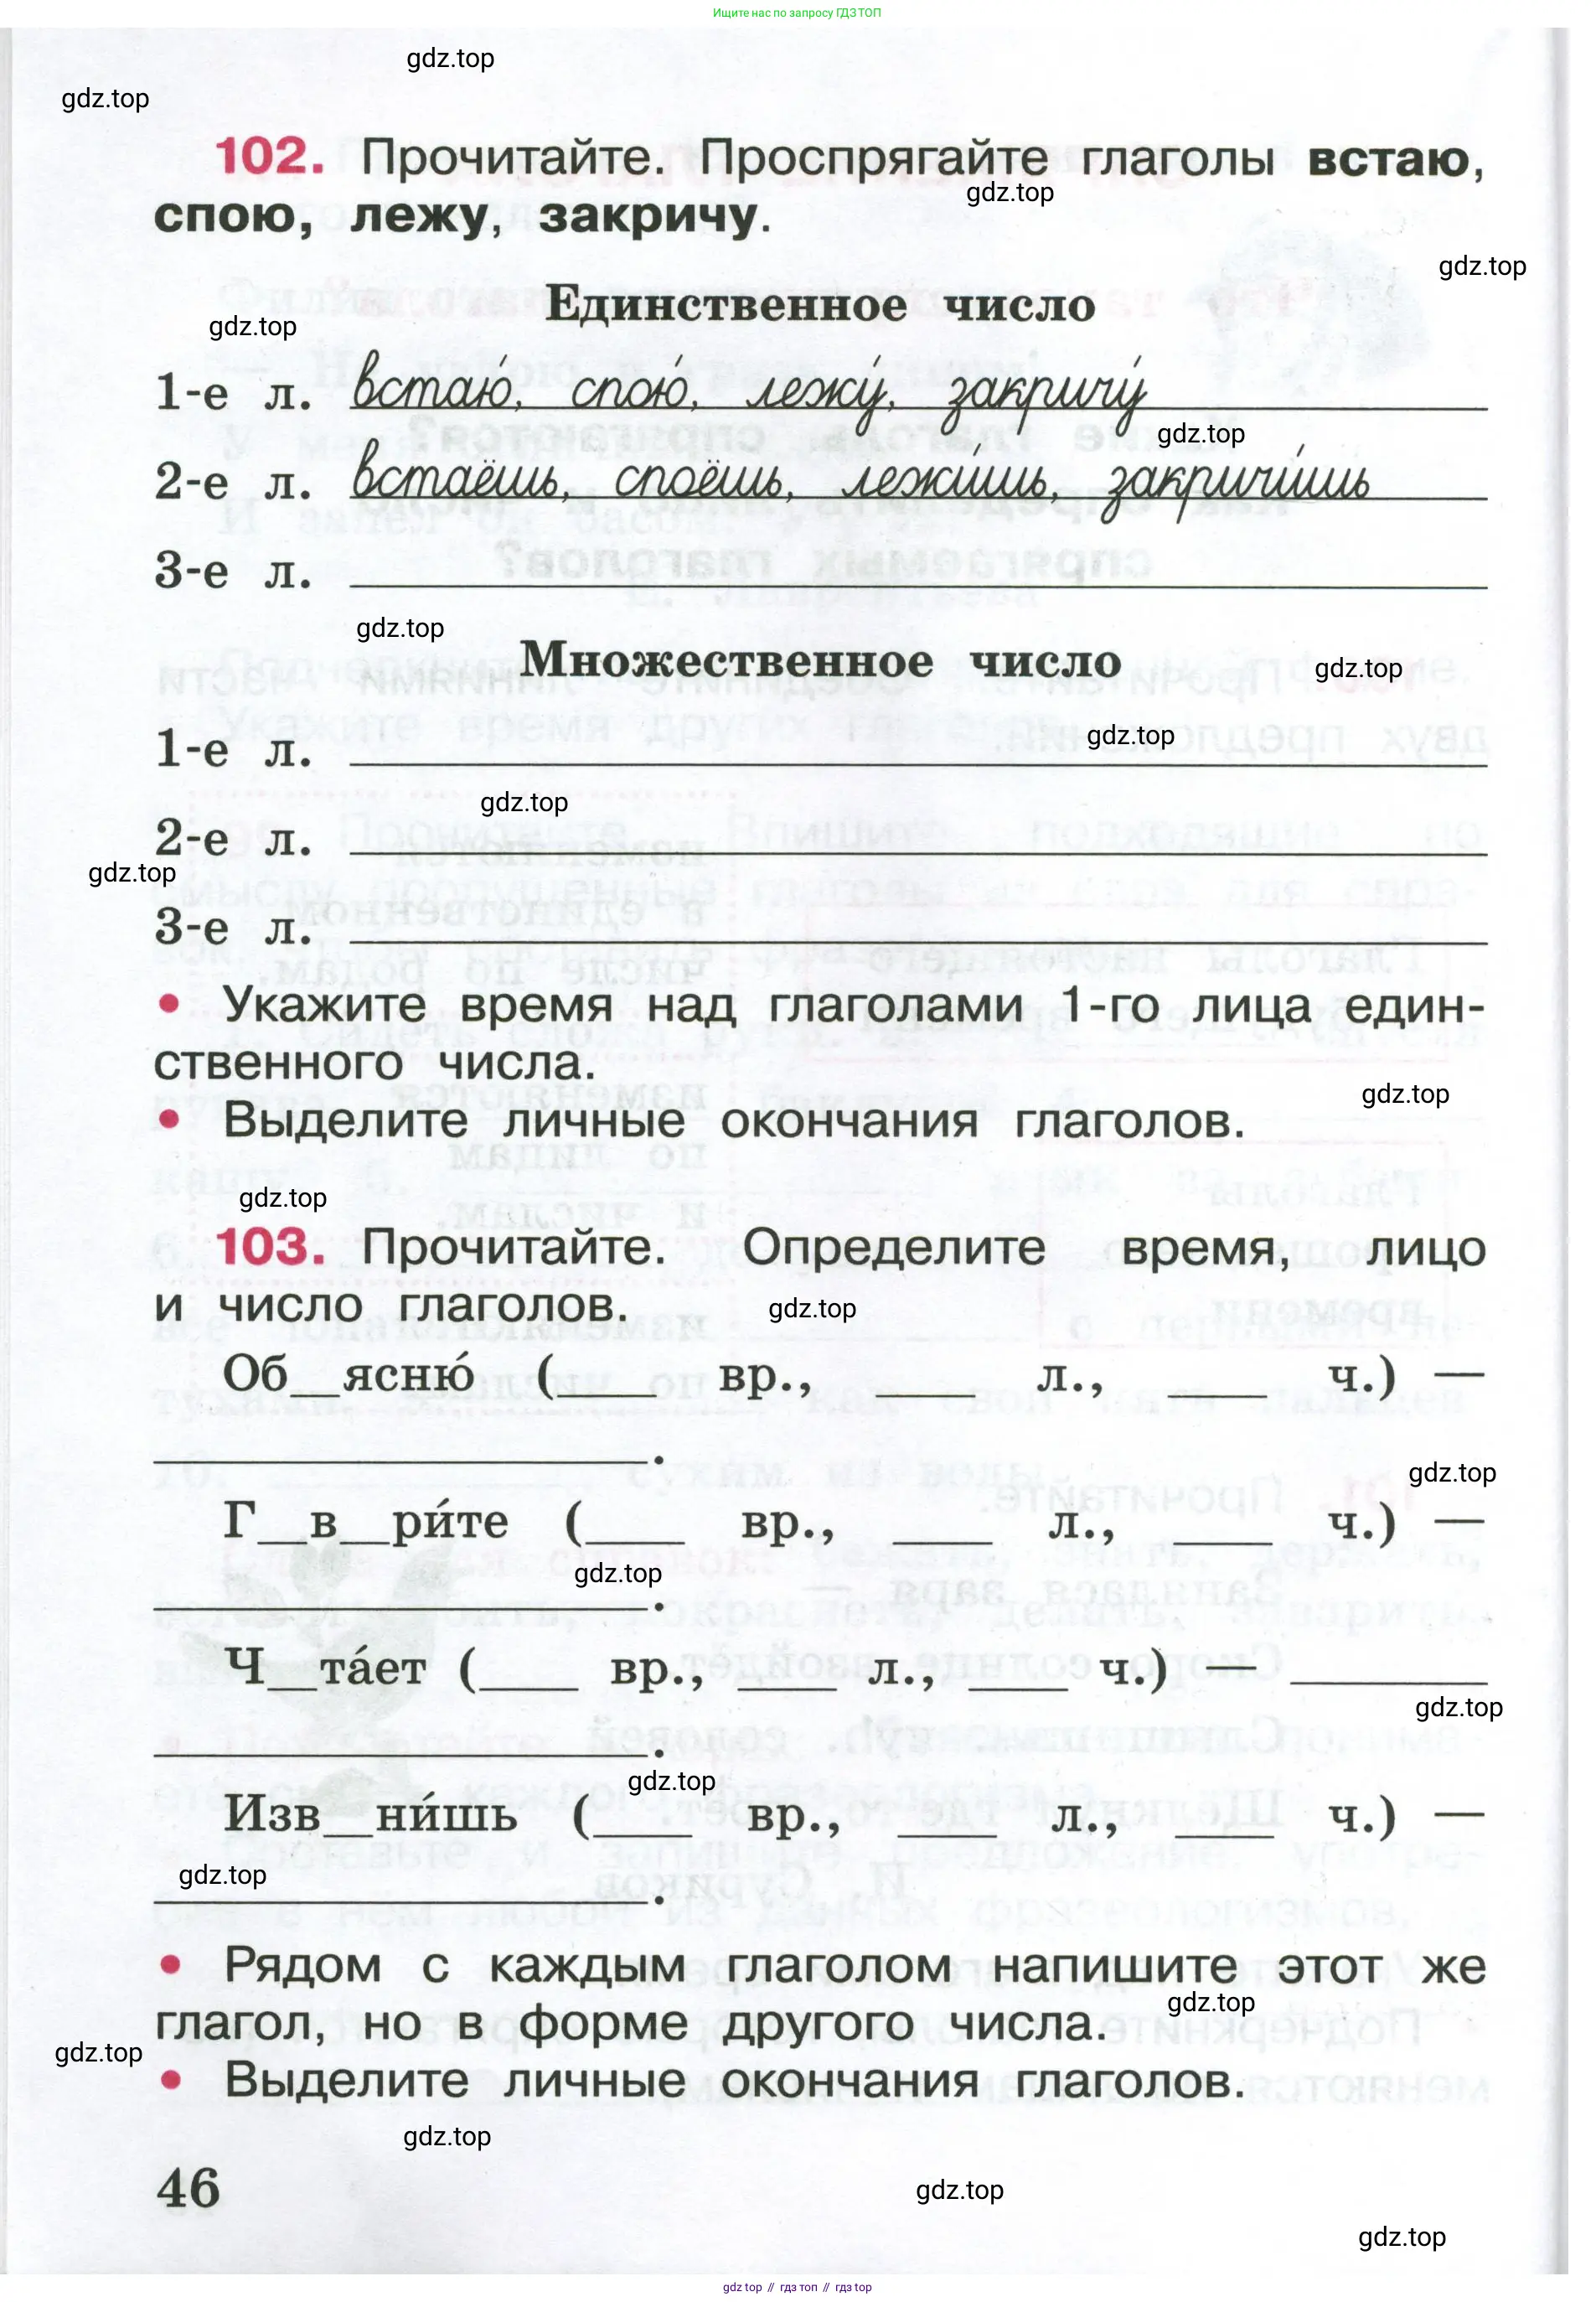 Ищите нас по запросу ГДЗ ТОП
gdz.top
gdz.top
102. Прочитайте. Проспрягайте глаголы встаю,
gdz.top
спою, лежу, закричу.
gdz.top
Единственное число
gdz.top
1-е л. встаю́, спою́, лежу́, закричу́
gdz.top
2-е л. встаёшь, споёшь, лежи́шь, закричи́шь
3-е л.
gdz.top
Множественное число
gdz.top
gdz.top
1-е л.
gdz.top
2-е л.
gdz.top
3-е л.
• Укажите время над глаголами 1-го лица един-
ственного числа.
gdz.top
• Выделите личные окончания глаголов.
gdz.top
103. Прочитайте. Определите время, лицо
и число глаголов.
gdz.top
Об__ясню́ (____ вр., ____ л., ____ ч.) —
____________________.
gdz.top
Г__в__ри́те (____ вр., ____ л., ____ ч.) —
gdz.top
____________________.
Ч__та́ет (____ вр., ____ л., ____ ч.) — ________
gdz.top
____________________.
gdz.top
Изв__ни́шь (____ вр., ____ л., ____ ч.) —
gdz.top
____________________.
• Рядом с каждым глаголом напишите этот же
gdz.top
глагол, но в форме другого числа.
gdz.top
• Выделите личные окончания глаголов.
gdz.top
46
gdz.top
gdz.top
gdz top // гдз топ // гдз top